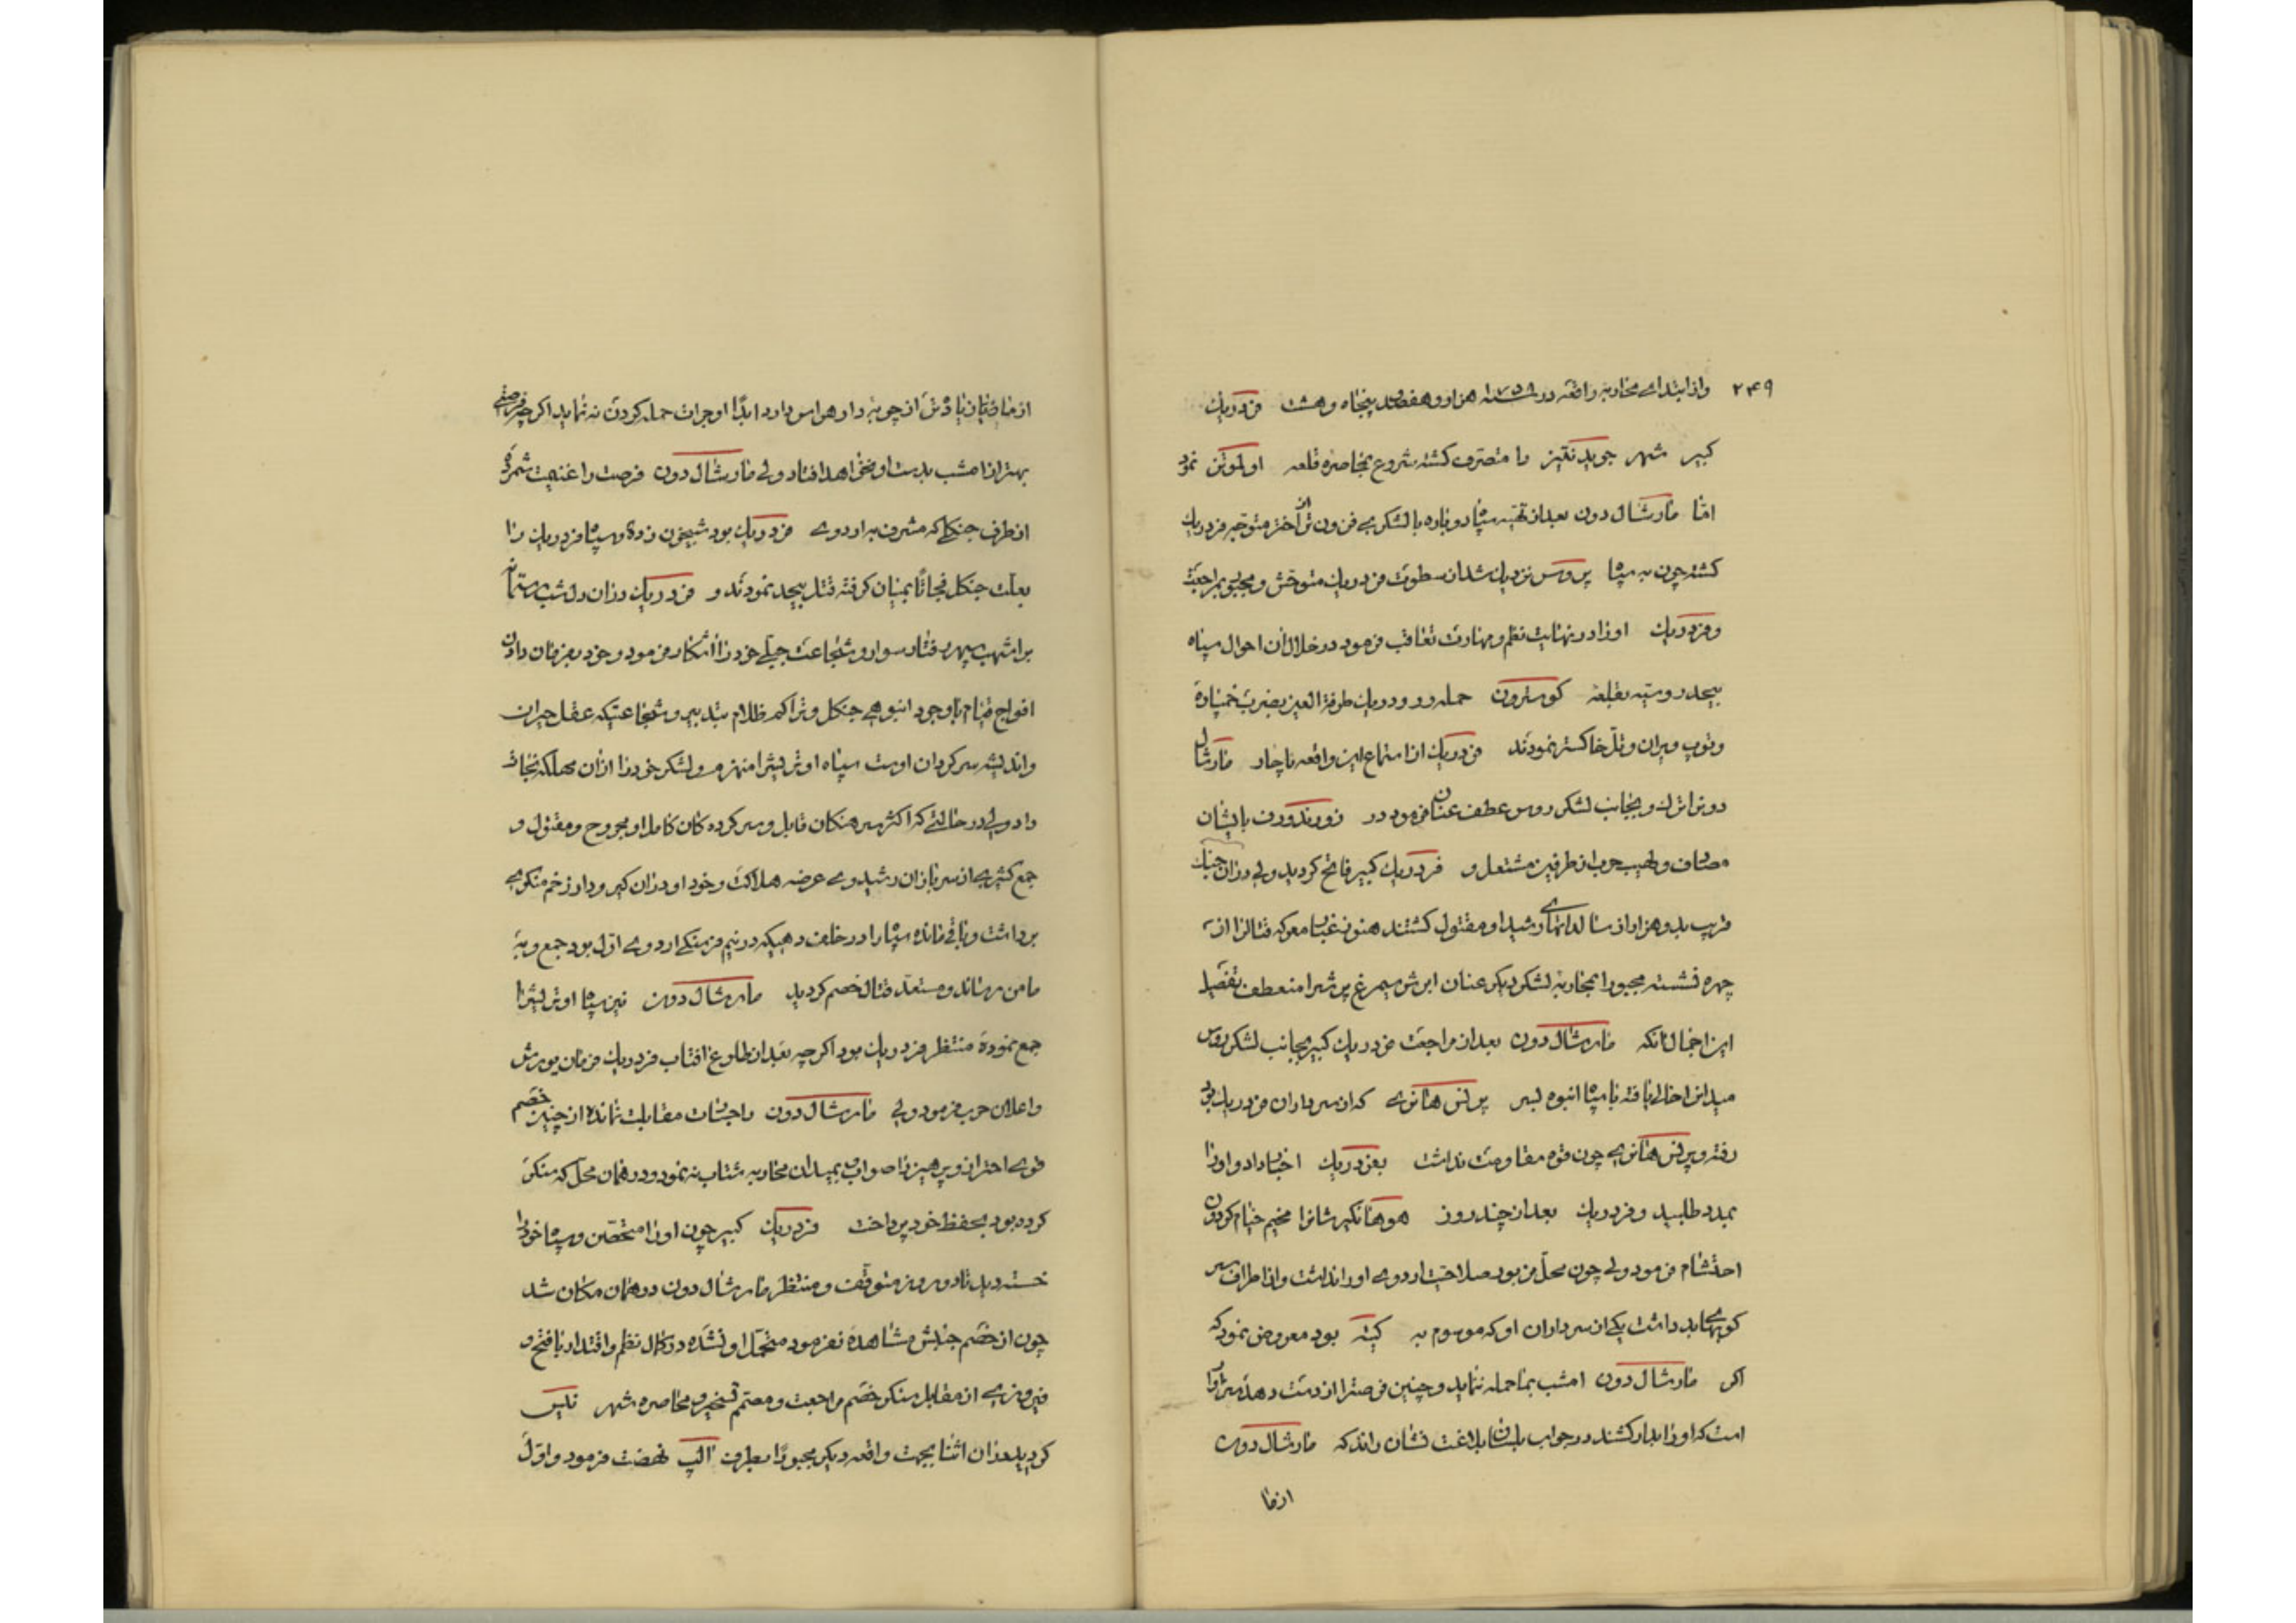 ۲۴۹ واز ابتداے محاربه واقعه در ۱۷۵۸ سنه هزار و هفصد پنجاه و هشت فردریك
کبیر شهر جویدنتیز را متصرف کشته شروع بمحاصره قلعه اولموتز نمود
امّا مارشال دون بعد از تهیّه سپاه دوباره بالشکرے فزون تر از آختر متوجّه فردریك
کشته چون به سپاه پروس نزدیك شد از سطوت فردریك متوحّش و مجبور بمراجعت
و فردریك اورا در نهایت نظم و مهارت تعاقب فرمود در خلال آن احوال سپاه
بیحد روسیّه بقلعه کوسترون حمله ور و در یك طرفة العین بضرب خمپاره
و توپ ویران و تلّ خاکستر نمودند فردریك از استماع این واقعه ناچار مارشال
دون را ترك و بجانب لشکر روس عطف عنان فرمود در زورندورف با ایشان
مصاف و لهیب حرب از طرفین مشتعل و فردریك کبیر فاتح کردید ولی در آن جنك
قریب بدو هزار از سالداتهاے رشید او مقتول کشتند هنوز غبار معرکه قتال را از
چهره نشسته مجبورا بمحاربه لشکر دیکر عنان ابرش سیمرغ پر شرا منعطف تفصیل
این اجمال آنکه مارشال دون بعد از مراجعت فردریك کبیر بجانب لشکر روس
میدان را خالی یافته با سپاه انبوه بسر پرنس هانری که از سرداران فردریك بود
رفته و پرنس هانری چون قوه مقاومت نداشت بفردریك اخبار داد و اورا
بمدد طلبید و فردریك بعد از چند روز هوهانکیرشانرا مخیم خیام کردون
احتشام فرمود ولے چون محلّ مزبور صلاحیت اردوے اورا نداشت و از اطراف سر
کوبهاے بد داشت یکے از سرداران او که موسوم به کیته بود معروض نمود که
اکر مارشال دون امشب بما حمله ننماید و چنین فرصترا از دست دهد سزاوار
است که اورا بدار کشند در جواب بلسان بلاغت نشان راند که مارشال دون
از ما
از ما زیاد تر از چوبه دار هراس دارد ابدًا او جرات حمله کردن نه نماید اکر چه فرصتے
بهتر از امشب بدست او نخواهد افتاد ولی مارشال دون فرصت را غنیمت شمرده
از طرف جنکلے که مشرف به اردوے فردریك بود شبیخون زده و سپاه فردریك را
بعلّت جنکل فجاتًا بمیان کرفته قتل بیحد نمودند و فردریك در آن دل شب رستمانه
بر اشهب سپهر رفتار سوار و شجاعت جبلّے خود را آشکار فرمود و خود بفرمان دادن
افواج قیام با وجود انبوهی جنکل و تراکم ظلام بتدبیر و شجاعتیکه عقل حیران
و اندیشه سرکردان اوست سپاه اوتریشرا منهزم و لشکر خود را از آن مهلکه نجات
داد ولی در حالتے که اکثر سرهنکان قابل و سرکرده کان کامل او مجروح و مقتول و
جمع کثیرے از سربازان رشید وے عرضه هلاکت و خود او در آن کیر و دار زخم منکرے
برداشت و باقی مانده سپاه را در خلف دهیکه در نیم فرسنکے اردوے اوّل بود جمع و به
مامن رساند و مستعدّ قتال خصم کردید مارشال دون نیز سپاه اوتریشرا
جمع نموده منتظر فردریك بود اکرچه بعد از طلوع افتاب فردریك فرمان یورش
و اعلان حرب فرمود ولی مارشال دون را جسارت مقابلت نمانده از چنین خصم
قوے احتراز و پرهیز را صواب بمیدان محاربه شتاب نه نمود و در همان محلّ که سنکر
کرده بود بحفظ خود پرداخت فردریك کبیر چون اورا متحصّن و سپاه خود را
خسته دید تا دو روز متوقّف و منتظر مارشال دون در همان مکان شد
چون از خصم جنبش مشاهده نفرمود متحمّل او نشده در کمال نظم و اقتدار با فتح و
فیروزے از مقابل سنکر خصم مراجعت و مصمّم تسخیر و محاصره شهر نایس
کردید در آن اثنا بجهت واقعه دیکر مجبورًا بطرف الب نهضت فرمود و اوّل